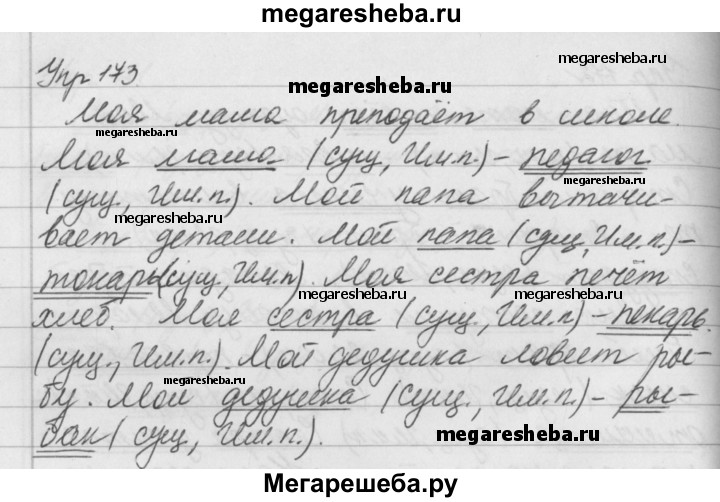 megaresheba.ru
Упр 173.
megaresheba.ru
megaresheba.ru
Моя мама преподаёт в школе.
megaresheba.ru
Моя мама (сущ, Им.п.) – педагог
megaresheba.ru
(сущ., Им.п.). Мой папа вытачи-
megaresheba.ru
вает детали. Мой папа (сущ, Им.п.) –
токарь (сущ, Им.п.). Моя сестра печёт
megaresheba.ru
megaresheba.ru
хлеб. Моя сестра (сущ, Им.п.) – пекарь.
megaresheba.ru
(сущ., Им.п.). Мой дедушка ловит ры-
megaresheba.ru
бу. Мой дедушка (сущ., Им.п.) – ры-
бак (сущ, Им.п.).
megaresheba.ru
Мегарешеба.ру